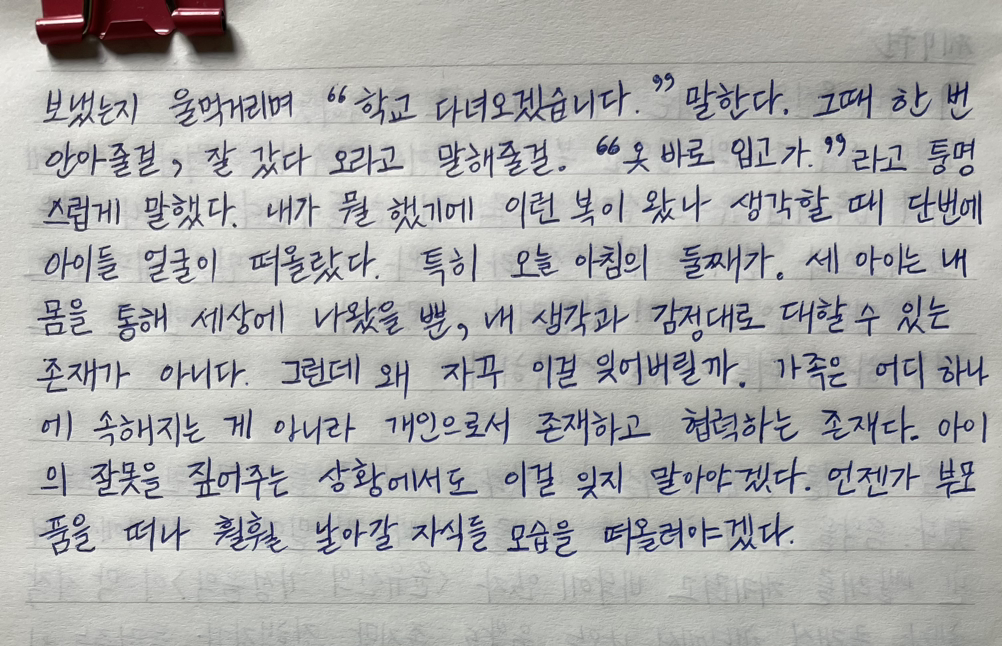 보냈는지 울먹거리며 “학교 다녀오겠습니다.” 말한다. 그때 한 번
안아줄걸, 잘 갔다 오라고 말해줄걸. “옷 바로 입고가.”라고 퉁명
스럽게 말했다. 내가 뭘 했기에 이런 복이 왔나 생각할 때 단번에
아이들 얼굴이 떠올랐다. 특히 오늘 아침의 둘째가. 세 아이는 내
몸을 통해 세상에 나왔을 뿐, 내 생각과 감정대로 대할 수 있는
존재가 아니다. 그런데 왜 자꾸 이걸 잊어버릴까. 가족은 어디 하나
에 속해지는 게 아니라 개인으로서 존재하고 협력하는 존재다. 아이
의 잘못을 짚어주는 상황에서도 이걸 잊지 말아야겠다. 언젠가 부모
품을 떠나 훨훨 날아갈 자식들 모습을 떠올려야겠다.